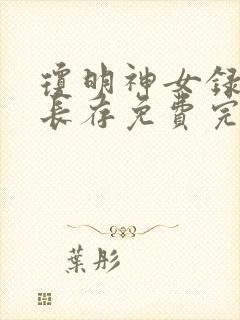 瓊明神女録
長存免費完
葉彤